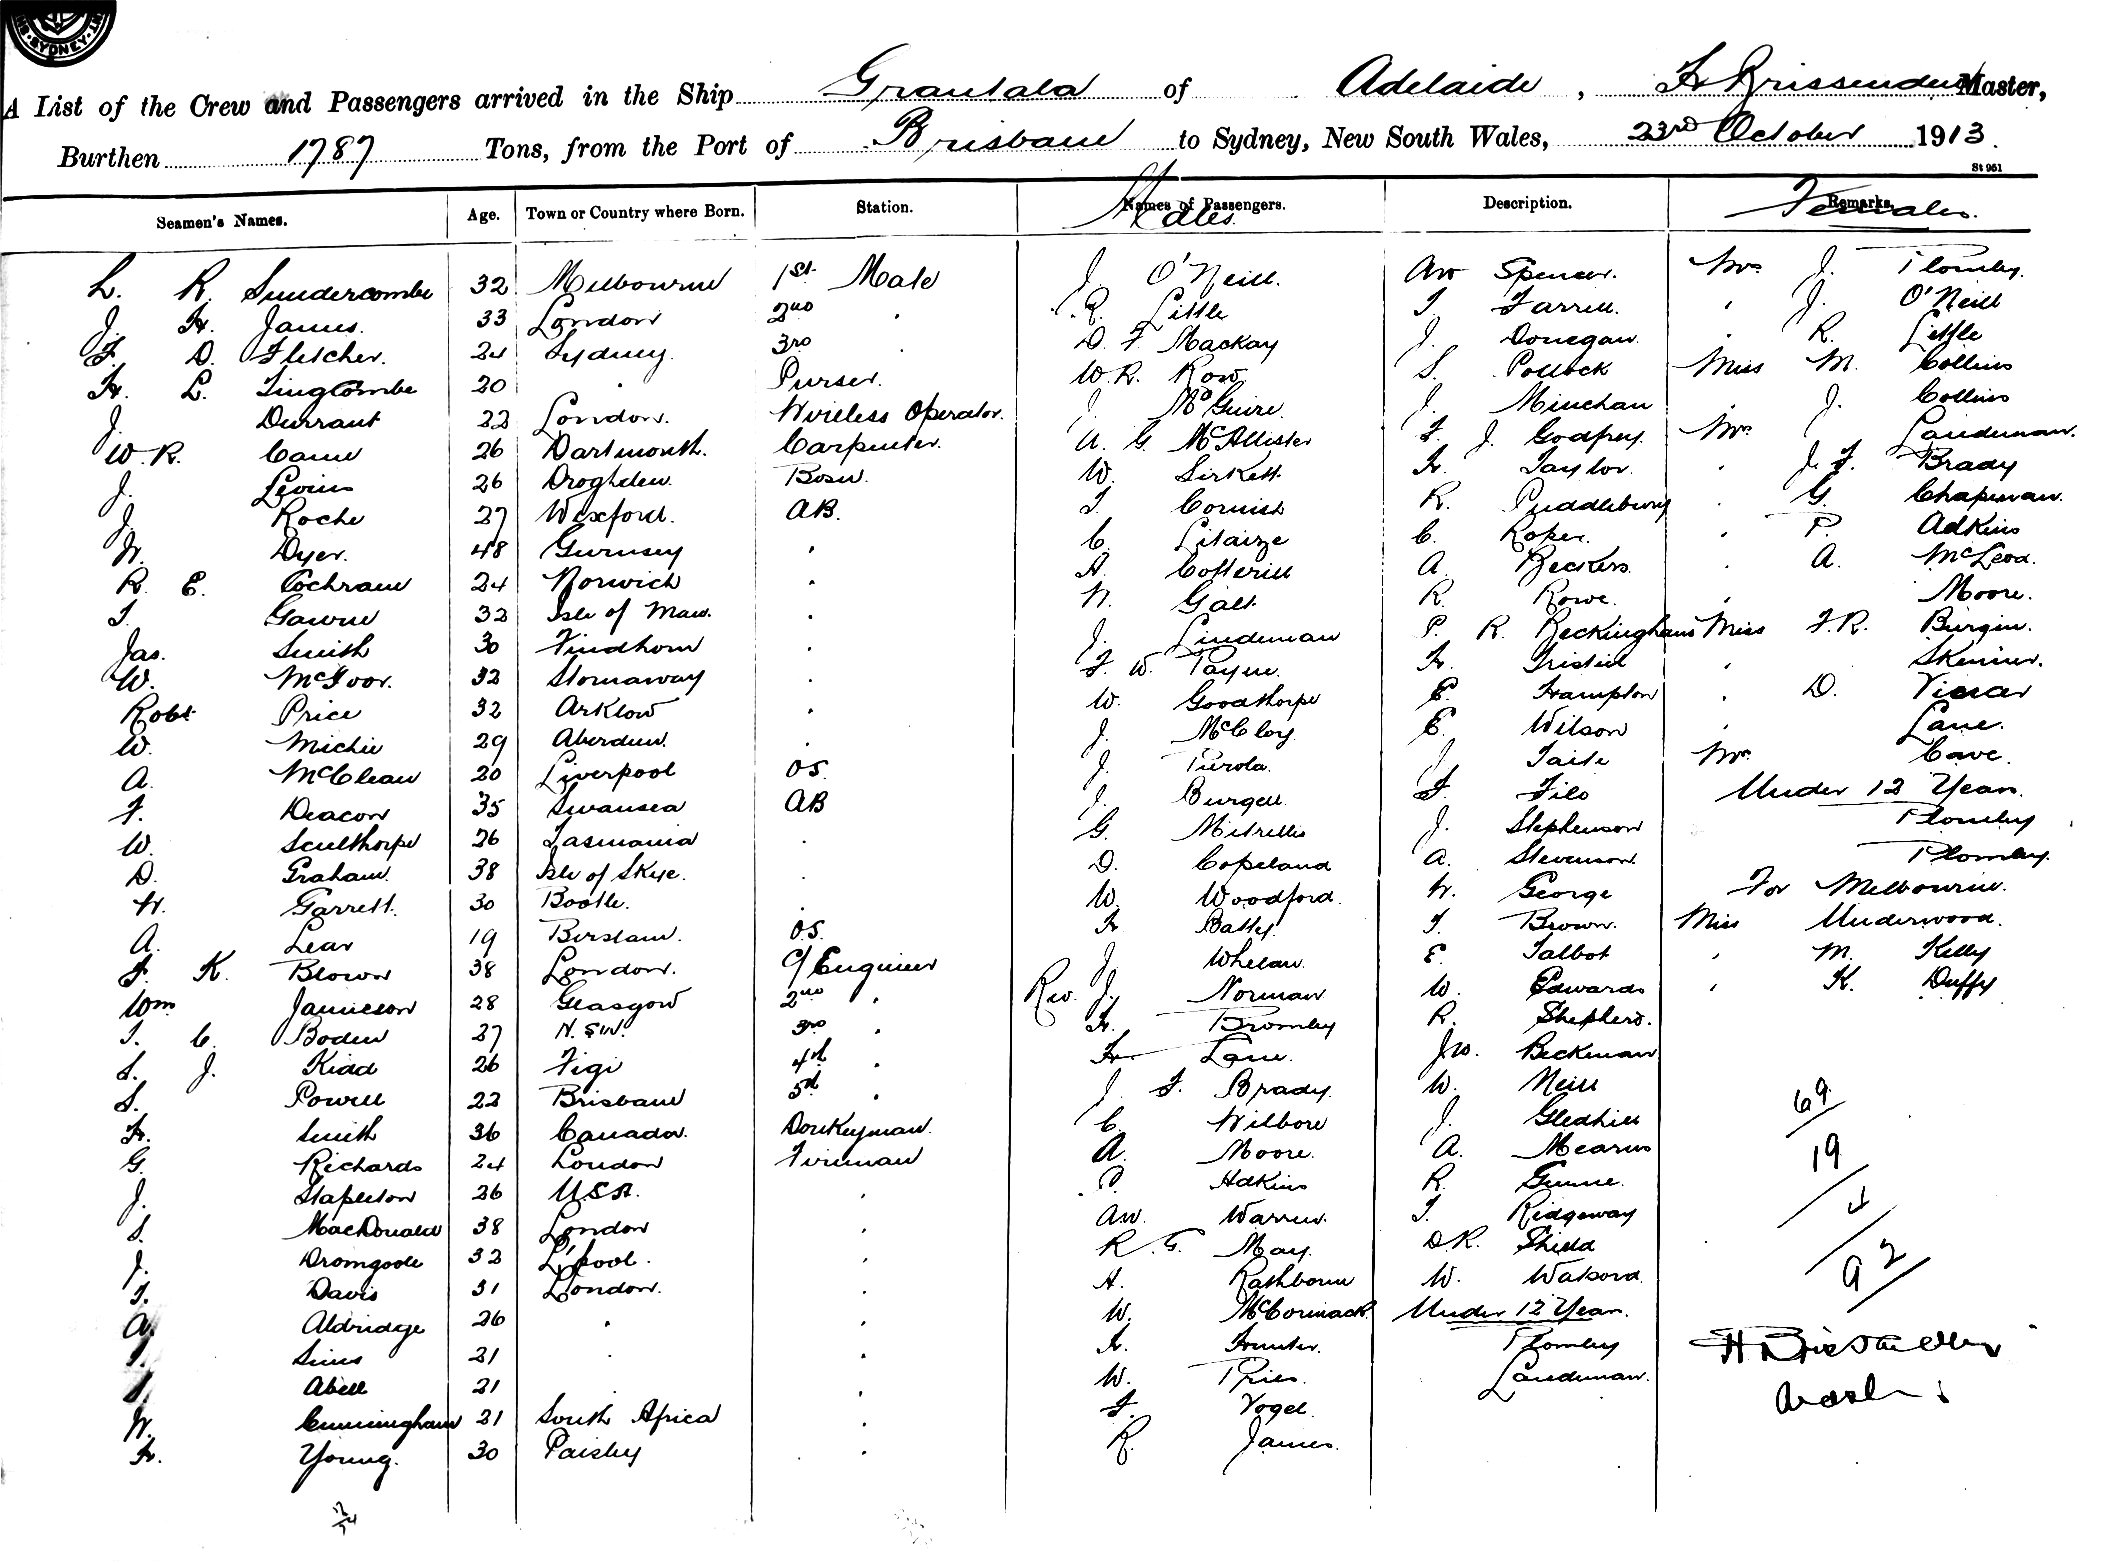 SYDNEY
A List of the Crew and Passengers arrived in the Ship Grantala of Adelaide, H Brissenden Master,
Burthen 1787 Tons, from the Port of Brisbane to Sydney, New South Wales, 23rd October 1913.
St 951
Seamen's Names. Age. Town or Country where Born. Station. Names of Passengers. Males. Description. Remarks. Females.
L. R. Sundercombe 32 Melbourne 1st Mate J. O'Neill. AW Spencer. Mrs J. Plomley.
J. H. James. 33 London 2nd " R. Little T. Farrell. " J. O'Neill
F. D. Fletcher. 24 Sydney. 3rd " D. F. Mackay J. Donegan. " R. Little
H. L. Tingcombe 20 " Purser. W.R. Row. S. Pollock Miss M. Collins
J. Durrant 22 London. Wireless Operator. J. McGuire. J. Minchan " J. Collins
W.R. Came 26 Dartmouth. Carpenter. A. G. McAllister F. J. Godfrey. Mrs J Landeman.
J. Levins 26 Drogheda. Bosn. W. Sirkett. H. Taylor. " J. F. Brady
J. Roche 27 Wexford. AB. T. Cornish R. Puddlebury " G. Chapman.
W. Dyer. 48 Gurnsey " C. Litaize C. Roper. " P. Adkins
R. E. Cochrane 24 Norwich " H. Cotterill A. Beckers. " A. McLeod.
T. Gawne 32 Isle of Man. " W. Galt. R. Rowe. " Moore.
Jas. Smith 30 Findhorn " J. Lindeman P. R. Beckingham Miss F.R. Burgin.
W. McIvor. 32 Stornaway " F. W. Payne. H. Tristid " Skinner.
Robt Price 32 Arklow " W. Goodthorpe E. Frampton " D. Vicar
W. Michie 29 Aberdeen. " J. McCloy. E. Wilson " Lane.
A. McClean 20 Liverpool OS. J. Purola. J Taite Mrs Cave.
F. Deacon 35 Swansea AB J. Burgell. F. Files Under 12 Years.
W. Sculthorpe 26 Tasmania " G. Mitrellis J. Stephenson Plomley
D. Graham. 38 Isle of Skye. " D. Copeland A. Stevenson. Plomley.
H. Garrett. 30 Bootle. " W. Woodford. W. George For Melbourne.
A. Lear 19 Burslam. O.S. H Batty. T. Brown. Miss Underwood.
F. K. Blown 38 London. C/Engineer J. Whelan. E Talbot " M. Kelly
Wm Jamieson 28 Glasgow 2nd " Rev. J. Norman W. Edwards " K. Duffy
T. C. Boden 27 N.S.W. 3rd " H. Bromley R. Shepherd.
S. J. Kidd 26 Figi 4th " H. Lane. JW. Beckman
S. Powell 22 Brisbane 5th " J. F. Brady. W. Neill
H. Smith 36 Canada. Donkeyman. C. Wilbore J. Gledhill
G. Richards 24 London Fireman A. Moore. A. Mearns
J. Stapleton 26 USA. " P. Adkins R. Gunne.
S. MacDonald 38 London " AW. Warren. T. Ridgeway
J. Dromgoole 32 L'pool. " R. G. May. D.R. Shield
T. Davis 31 London. " H. Rathborne W. Watsord.
A. Aldridge 26 " " W. McCormack Under 12 Years.
Sims 21 " " H. Hunter. Plomley
Abell 21 " " W. Pries. Landeman.
W. Cunningham 21 South Africa " F. Vogel.
H. Young. 30 Paisley " R. James.
69
19
4
92
H Brissenden
Master